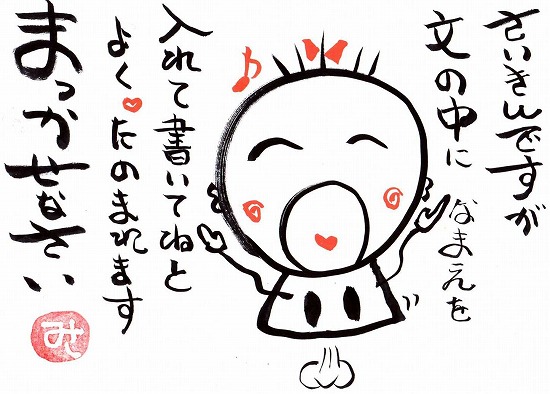 さいきんですが
文の中に
なまえを
入れて書いてねと
よくたのまれます
まっかせなさい
みさ